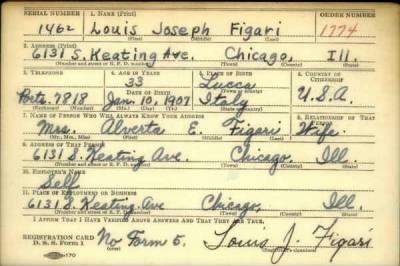 SERIAL NUMBER 1. NAME (Print) ORDER NUMBER
1462 Louis Joseph Figari 1774
(First) (Middle) (Last)
2. ADDRESS (Print)
6131 S. Keating Ave. Chicago, Ill.
(Number and street or R. F. D. number) (Town) (County) (State)
3. TELEPHONE 4. AGE IN YEARS 5. PLACE OF BIRTH 6. COUNTRY OF CITIZENSHIP
33 Lucca
DATE OF BIRTH (Town or county)
Ports. 7818 Jan. 10, 1907 Italy U.S.A.
(Exchange) (No.) (Mo.) (Day) (Yr.) (State or country)
7. NAME OF PERSON WHO WILL ALWAYS KNOW YOUR ADDRESS 8. RELATIONSHIP OF THAT PERSON
Mrs. Alverta E. Figari Wife
(Mr., Mrs., Miss) (First) (Middle) (Last)
9. ADDRESS OF THAT PERSON
6131 S. Keating Ave. Chicago Ill.
(Number and street or R. F. D. number) (Town) (County) (State)
10. EMPLOYER'S NAME
Self
11. PLACE OF EMPLOYMENT OR BUSINESS
6131 S. Keating Ave Chicago, Ill.
(Number and street or R. F. D. number) (Town) (County) (State)
I AFFIRM THAT I HAVE VERIFIED ABOVE ANSWERS AND THAT THEY ARE TRUE.
REGISTRATION CARD
D. S. S. FORM 1 No Form 5. Louis J. Figari